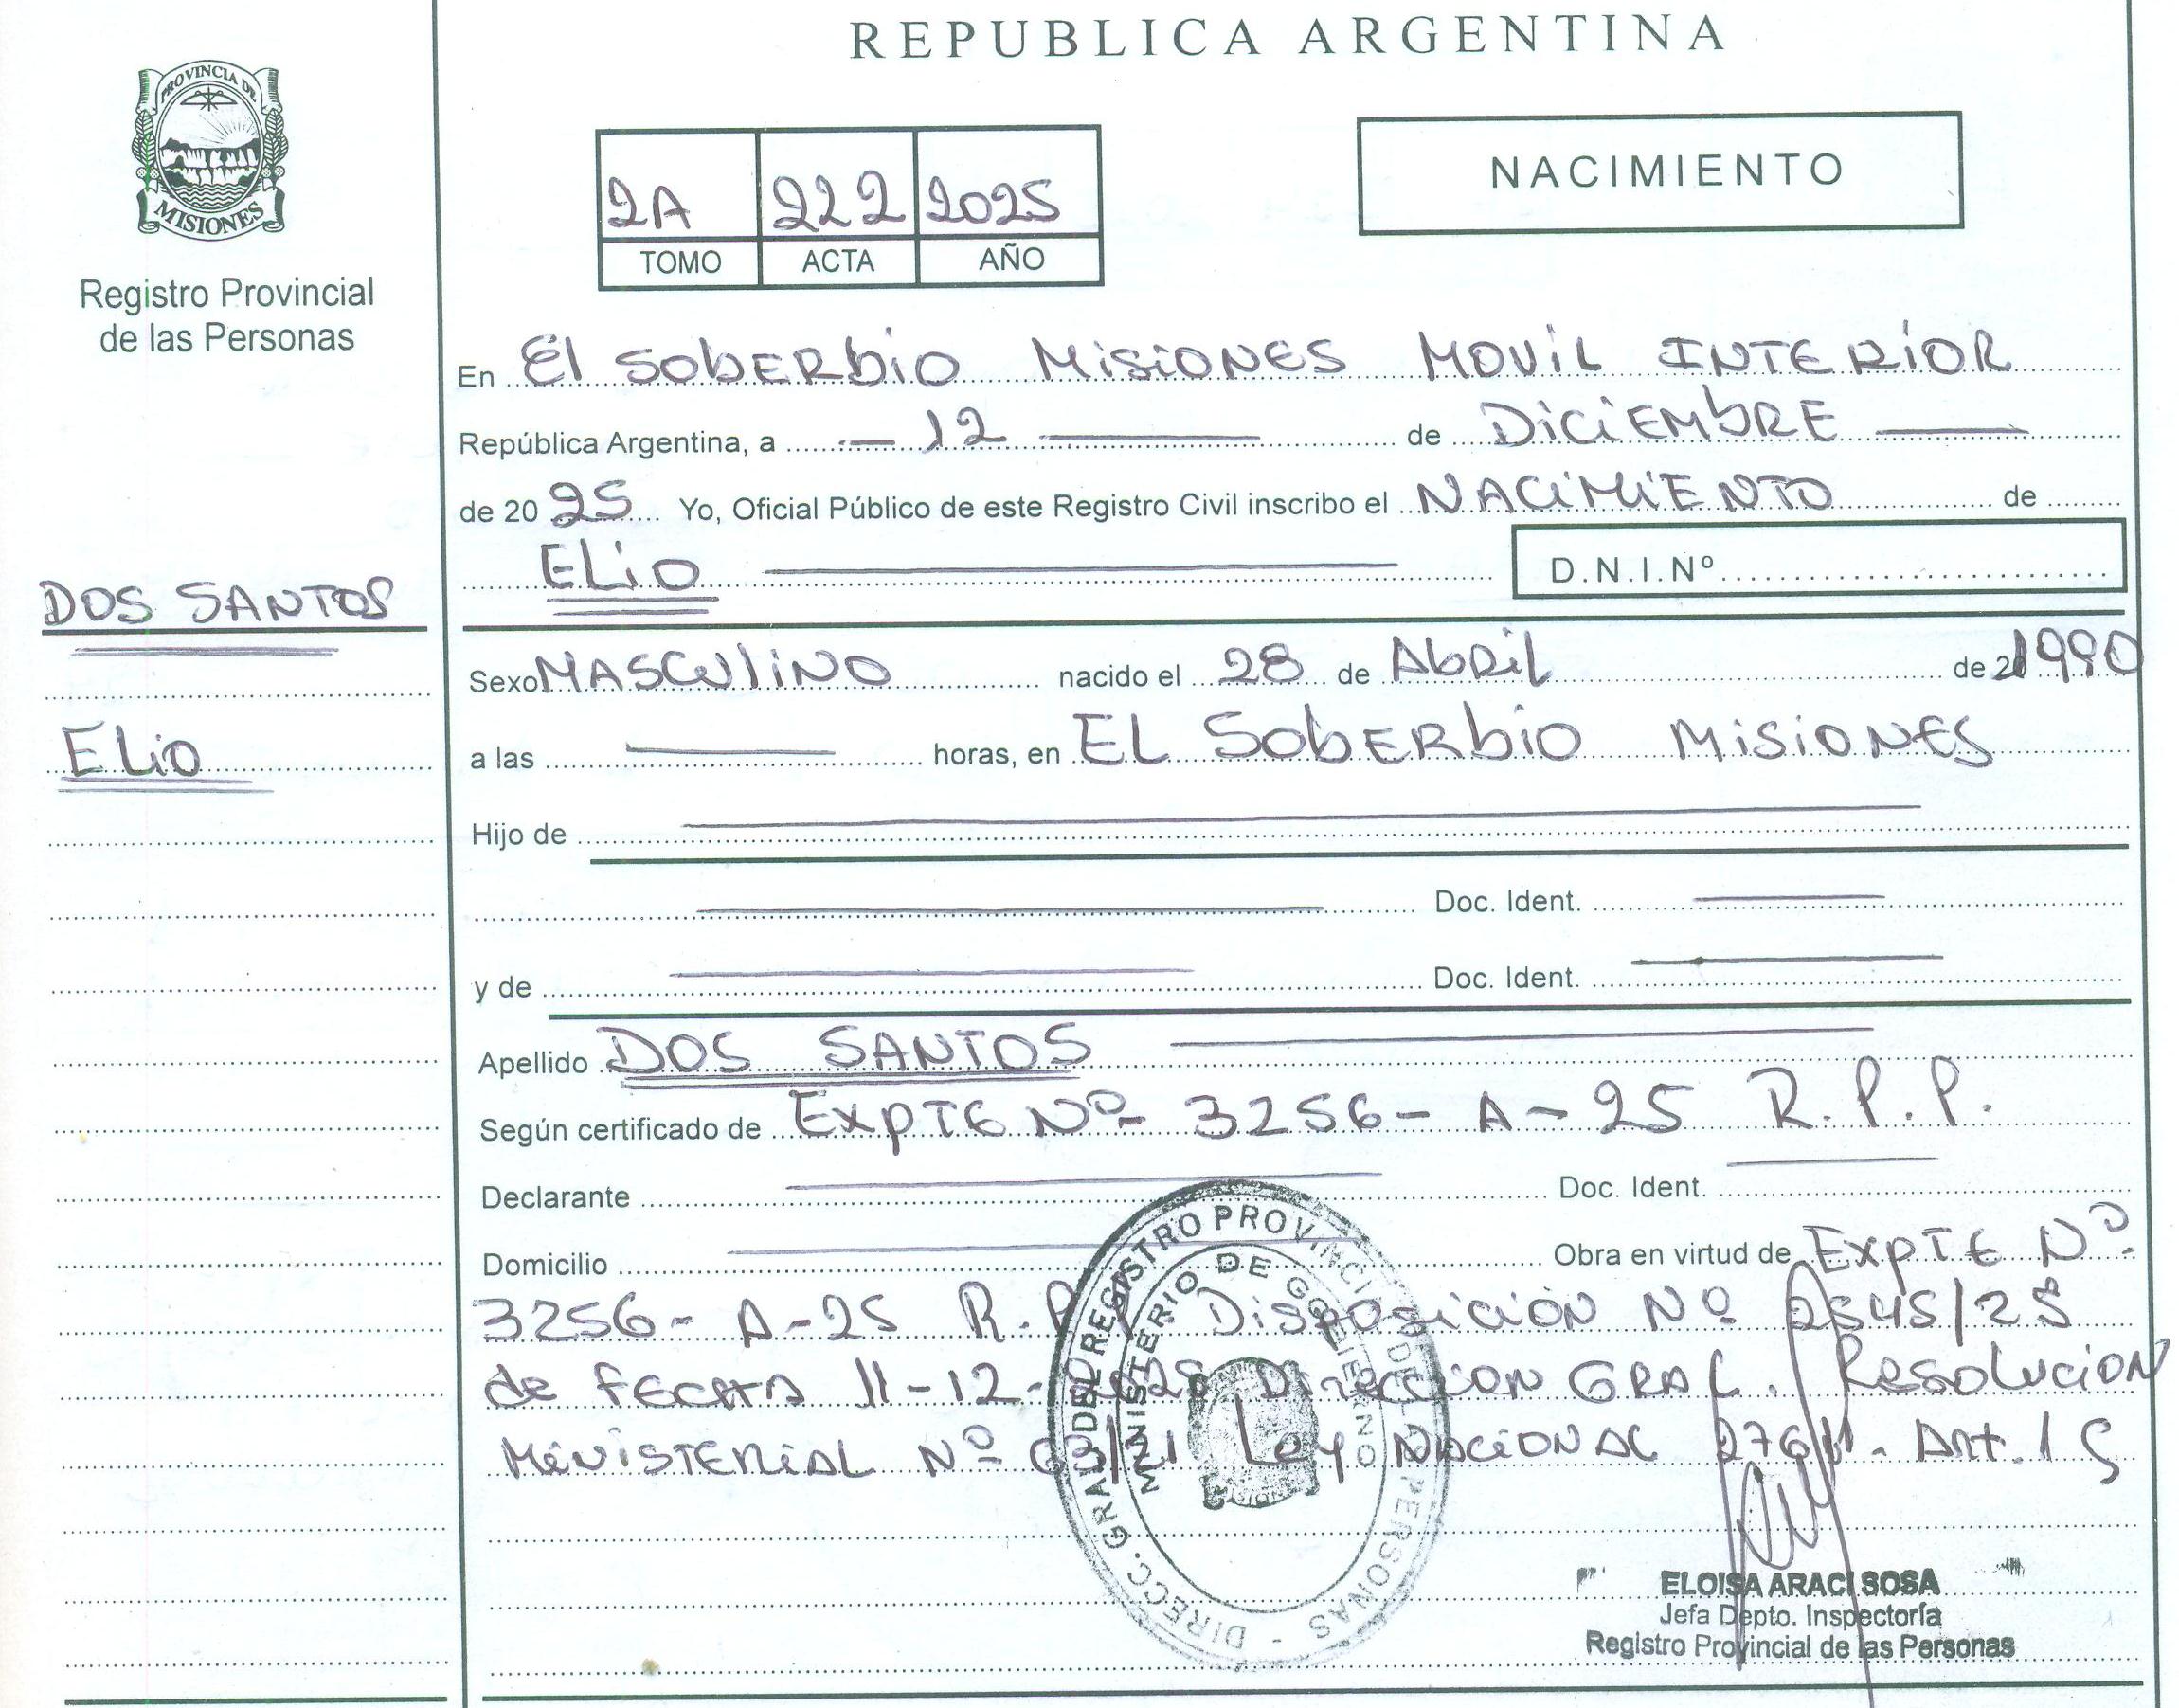 REPUBLICA ARGENTINA
PROVINCIA DE
MISIONES
Registro Provincial
de las Personas
NACIMIENTO
2A 222 2025
TOMO ACTA AÑO
En El SOBERBIO MISIONES MOVIL INTERIOR
República Argentina, a 12 de DICIEMBRE
de 2025 Yo, Oficial Público de este Registro Civil inscribo el NACIMIENTO de
ELIO D.N.I.Nº
DOS SANTOS
ELIO
Sexo MASCULINO nacido el 28 de Abril de 1990
a las horas, en EL SOBERBIO MISIONES
Hijo de
Doc. Ident.
y de Doc. Ident.
Apellido DOS SANTOS
Según certificado de EXPTE Nº 3256-A-25 R.P.P.
Declarante Doc. Ident.
Domicilio Obra en virtud de EXPTE Nº
3256-A-25 R.P.P. Disposición Nº 2545/25
de FECHA 11-12-2025 DIRECCION GRAL. Resolucion
MINISTERIAL Nº 63/21 Ley NACIONAL 27611- Art. 15
DIRECC. GRAL DEL REGISTRO PROVINCIAL DE LAS PERSONAS -
MINISTERIO DE GOBIERNO
ELOISA ARACI SOSA
Jefa Depto. Inspectoría
Registro Provincial de las Personas